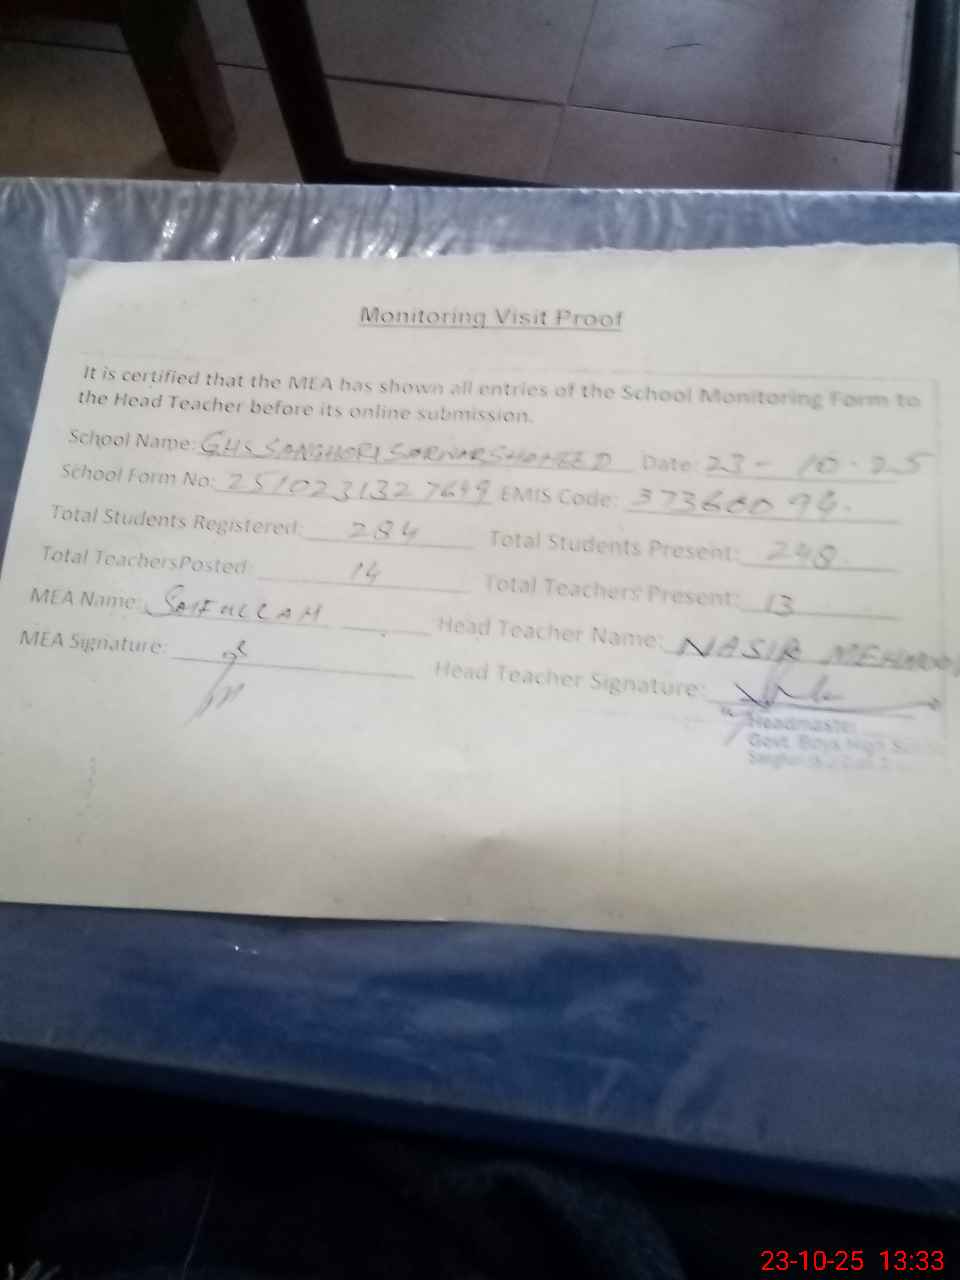 Monitoring Visit Proof
It is certified that the MEA has shown all entries of the School Monitoring Form to
the Head Teacher before its online submission.
School Name: GHS SANGHORI SARWAR SHAHEED Date: 23 - 10 - 25
School Form No: 2510231327699 EMIS Code: 37360094.
Total Students Registered: 284 Total Students Present: 248
Total TeachersPosted: 14 Total Teachers Present: 13
MEA Name: SAIFULLAH Head Teacher Name: NASIR MEHMOOD
MEA Signature: Head Teacher Signature:
Headmaster
Govt. Boys High
23-10-25 13:33